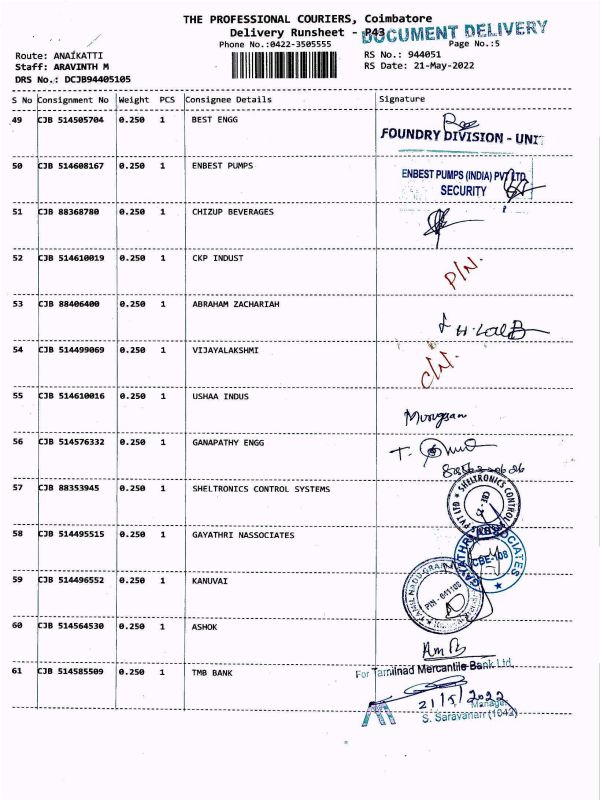 THE PROFESSIONAL COURIERS, Coimbatore
Delivery Runsheet - P43
DOCUMENT DELIVERY
Phone No.:0422-3505555
Page No.:5
Route: ANAIKATTI
RS No.: 944051
Staff: ARAVINTH M
RS Date: 21-May-2022
DRS No.: DCJB94405105
S No Consignment No Weight PCS Consignee Details Signature
49 CJB 514505704 0.250 1 BEST ENGG
FOUNDRY DIVISION - UNIT
50 CJB 514608167 0.250 1 ENBEST PUMPS
ENBEST PUMPS (INDIA) PVT LTD
SECURITY
51 CJB 88368780 0.250 1 CHIZUP BEVERAGES
52 CJB 514610019 0.250 1 CKP INDUST
P/N.
53 CJB 88406400 0.250 1 ABRAHAM ZACHARIAH
54 CJB 514499069 0.250 1 VIJAYALAKSHMI
C/N.
55 CJB 514610016 0.250 1 USHAA INDUS
Murugsan
56 CJB 514576332 0.250 1 GANAPATHY ENGG
57 CJB 88353945 0.250 1 SHELTRONICS CONTROL SYSTEMS
SHELTRONICS CONTROL
PVT LTD
58 CJB 514495515 0.250 1 GAYATHRI NASSOCIATES
GAYATHRI ASSOCIATES
CBE-108
59 CJB 514496552 0.250 1 KANUVAI
60 CJB 514564530 0.250 1 ASHOK
61 CJB 514585509 0.250 1 TMB BANK
For Tamilnad Mercantile Bank Ltd.
21/5/2022
Manager
S. Saravanan (1042)